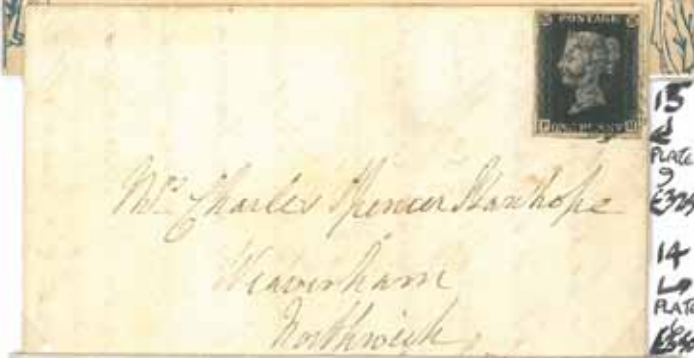 POSTAGE
ONE PENNY
Mrs Charles Spencer Stanhope
Weaverham
Northwich
15
PLATE
9
14
PLATE